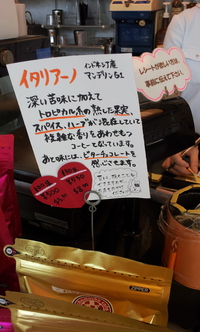 イタリアーノ
インドネシア産
マンデリンG1
深い苦味に加えて
トロピカル系の熟した果実、
スパイス、ハーブが混在していて
複雑な香りをあわせもつ
コーヒーとなっています。
あと味には、ビターチョコレートを
感じさせます。
レシートが欲しい方は、
事前に伝えて下さい。
ZIPPER